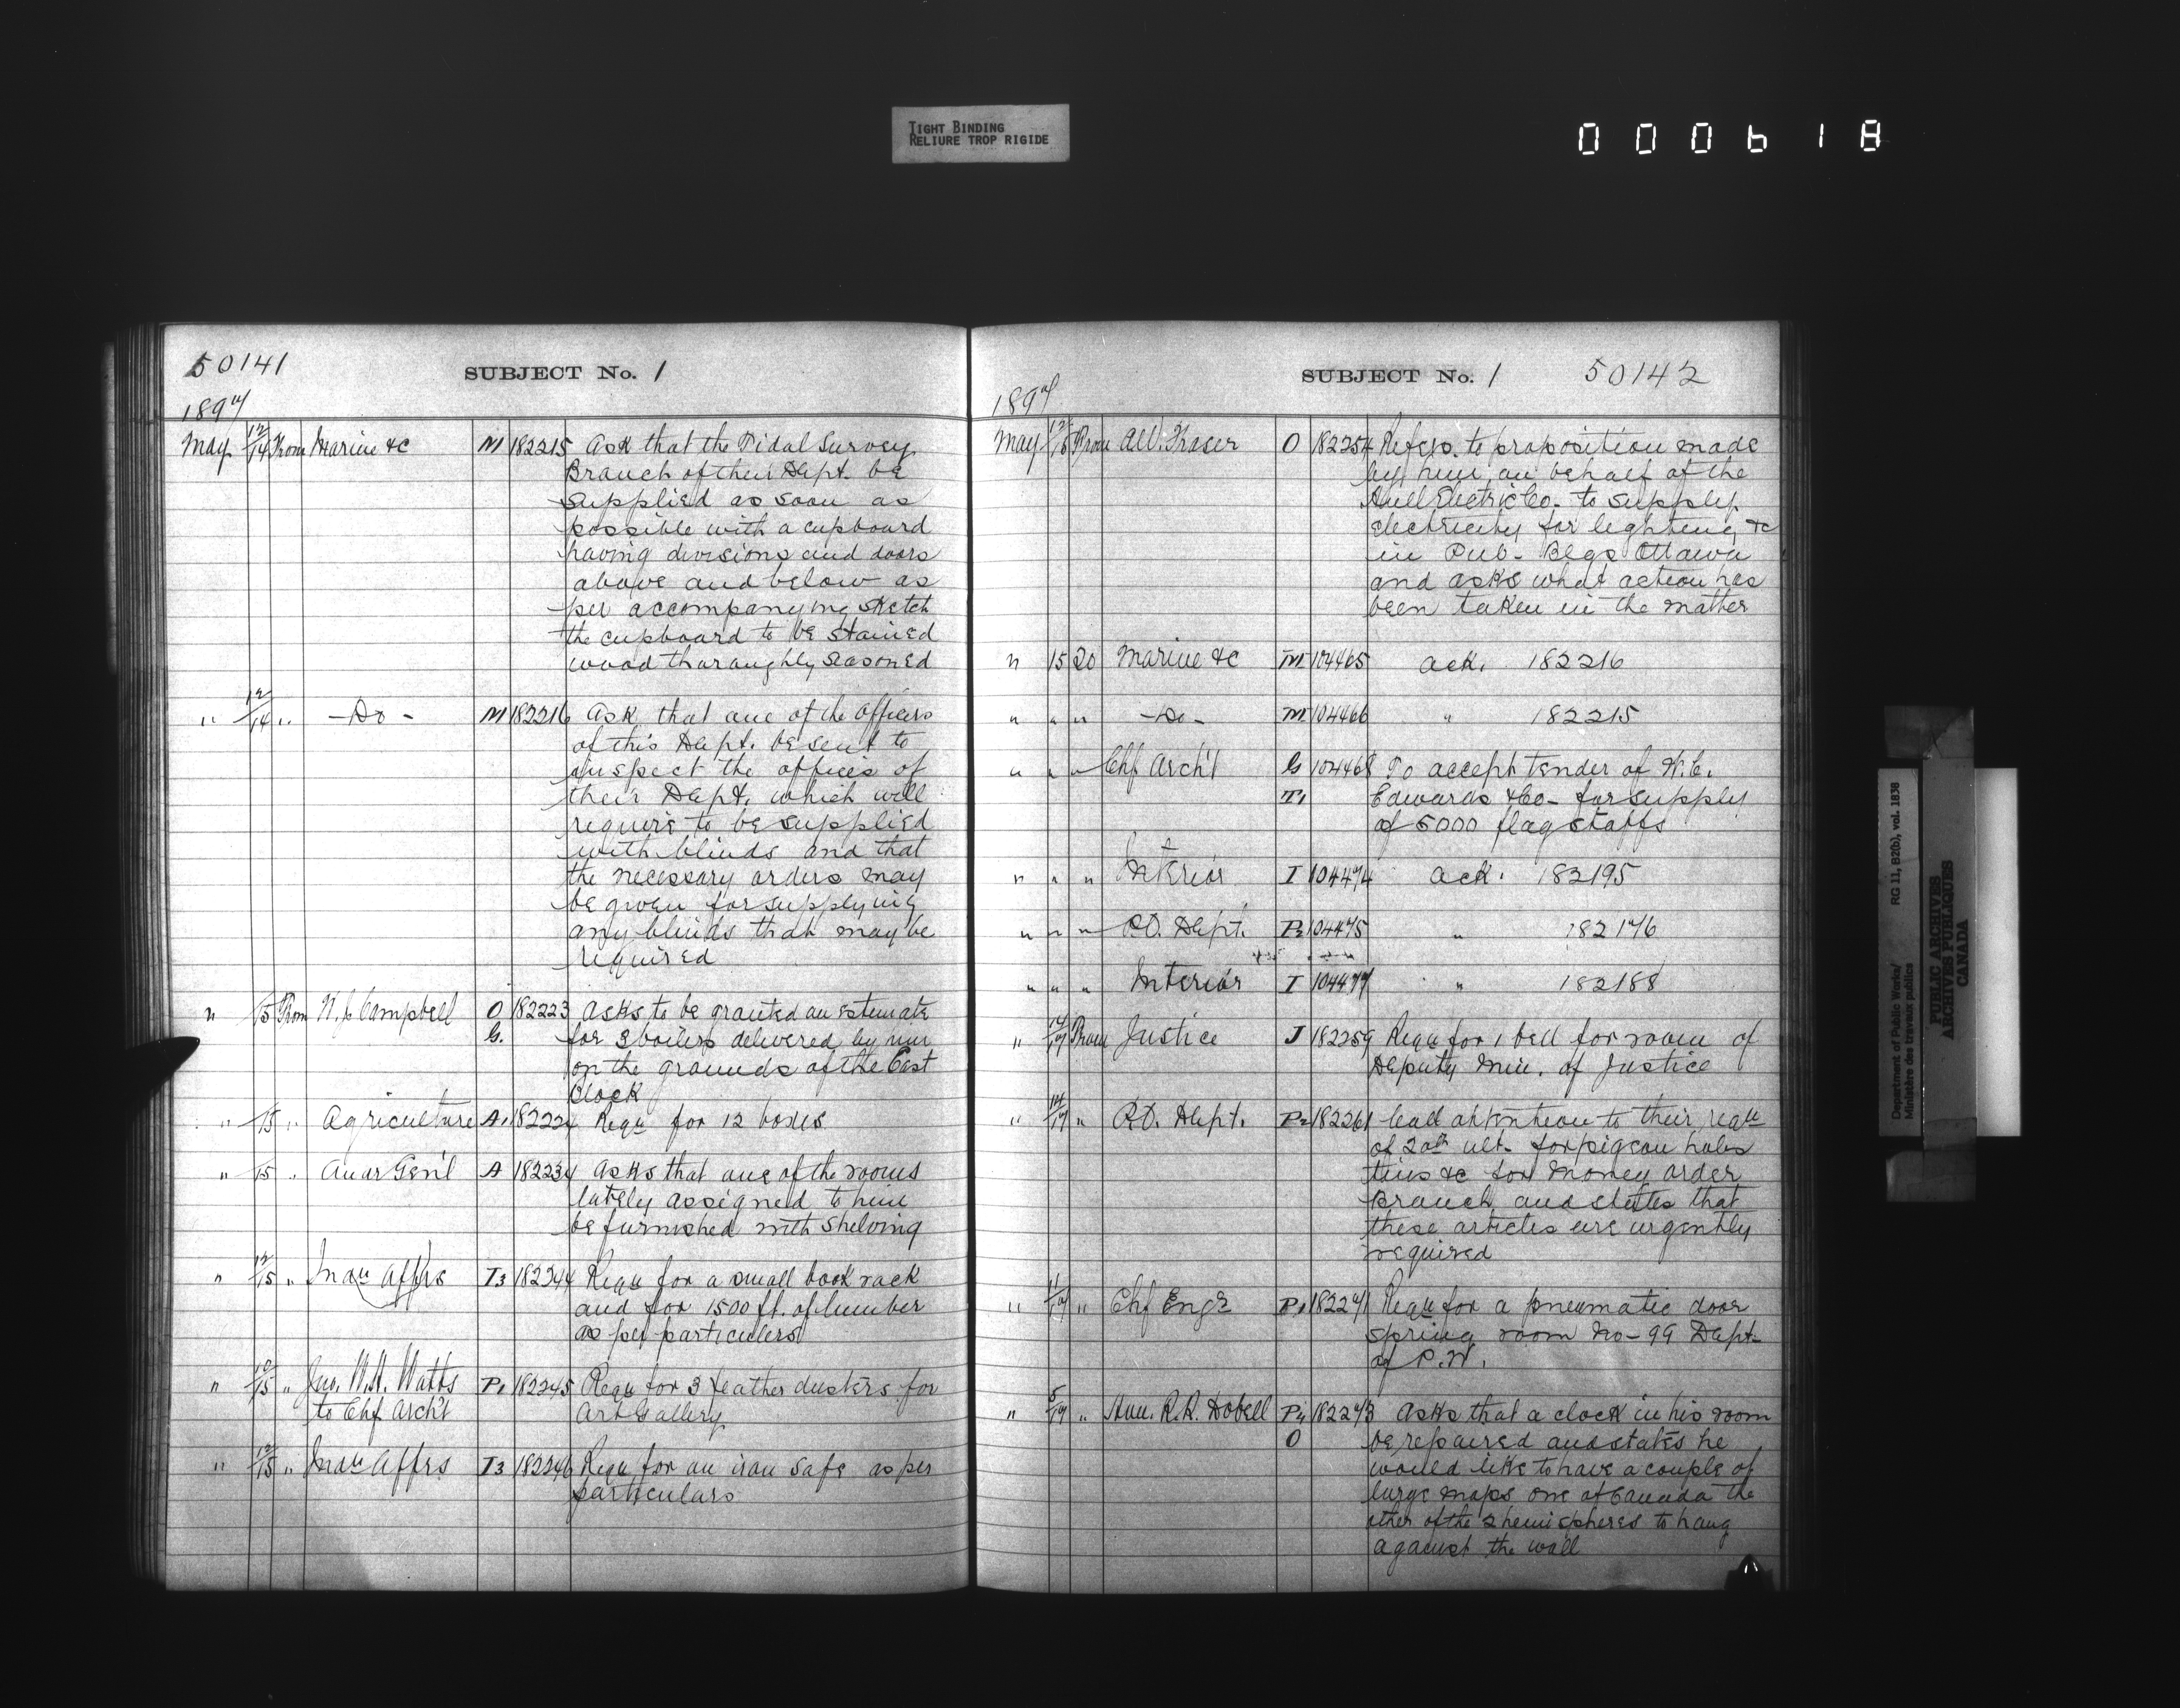 TIGHT BINDING
RELIURE TROP RIGIDE
000618
50141
SUBJECT No. 1
1897
May 12/14 From Marine &c M 182215 Ask that the Tidal Survey
Branch of their Dept. be
supplied as soon as
possible with a cupboard
having divisions and doors
above and below as
per accompanying sketch
the cupboard to be stained
wood thoroughly seasoned
" 12/14 " - Do - M 182216 Ask that one of the officers
of this Dept. be sent to
inspect the offices of
their Dept. which will
require to be supplied
with blinds and that
the necessary orders may
be given for supplying
any blinds that may be
required
" 15 From Campbell O 182223 Asks to be granted an estimate
G. for 3 boilers delivered by him
on the grounds of the East
Block
" 15 " Agriculture A1 182224 Requ for 12 boxes
" 15 " Audr Gen'l A 182234 Asks that one of the rooms
lately assigned to him
be furnished with shelving
" 12/15 " Indn Affrs I3 182244 Requ for a small book rack
and for 1500 ft. of lumber
as per particulars
" 15 " Jno. W.H. Watts P1 182245 Requ for 3 feather dusters for
to Chf Arch't Art Gallery
" 12/15 " Indn Affrs I3 182246 Requ for an iron safe as per
particulars
SUBJECT No. 1 50142
1897
May 15 From Fraser O 182254 Refers. to proposition made
by him on behalf of the
Hull Electric Co. to supply
electricity for lighting &c
in Pub. Blgs Ottawa
and asks what action has
been taken in the matter
" 15 To Marine &c M 104465 ack. 182216
" " " - Do - M 104466 " 182215
" " " Chf Arch't G 104468 To accept tender of W.C.
T1 Edwards & Co - for supply
of 5000 flagstaffs
" " " Interior I 104474 ack. 182195
" " " P.O. Dept. P2 104475 " 182176
" " " Interior I 104477 " 182188
" 14/17 From Justice J 182259 Requ for 1 bell for room of
Deputy Min. of Justice
" 14/17 " P.O. Dept. P2 182261 Call attention to their requ
of 20th ult. for pigeon holes
tins &c for Money order
Branch and states that
these articles are urgently
required
" 11/17 " Chf Engr P1 182271 Requ for a pneumatic door
spring room No - 99 Dept.
of P.W.
" 5/17 " Hon. R.R. Dobell P4 182273 Asks that a clock in his room
O be repaired and states he
would like to have a couple of
large maps one of Canada the
other of the 2 hemispheres to hang
against the wall
Department of Public Works/ RG 11, B2(b), vol. 1838
Ministère des travaux publics
PUBLIC ARCHIVES
ARCHIVES PUBLIQUES
CANADA